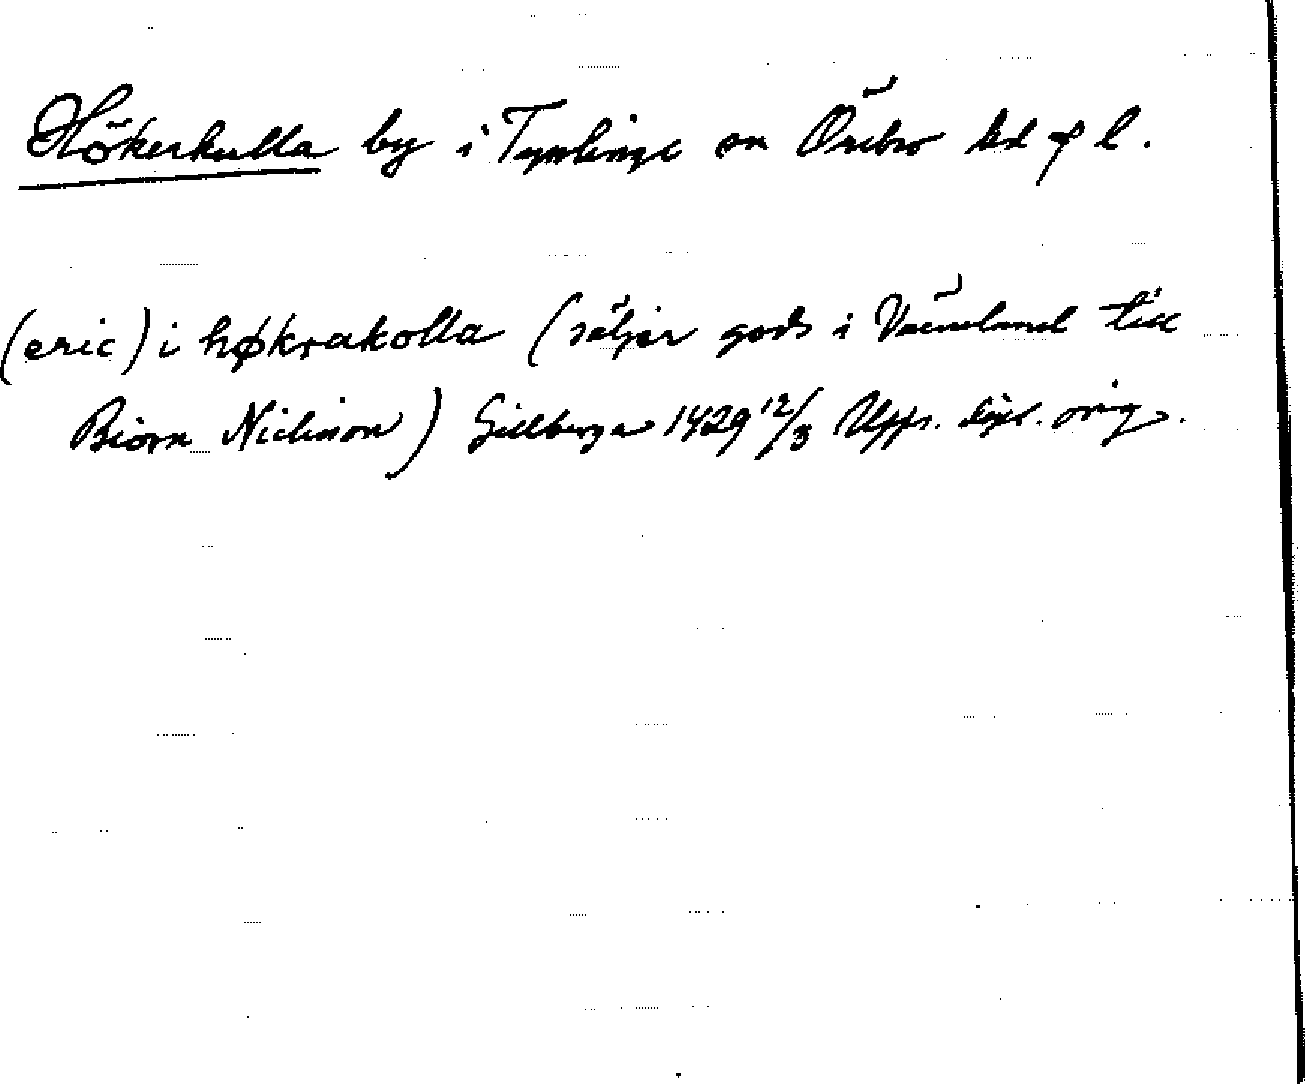 Hökerkulla by i Tysslinge sn Örebro hd o l.
(eric) i høkrakolla (säljer gods i Värmland till
Biorn Niclisson) Gillberga 1429 12/3 Upps. dipl. orig.